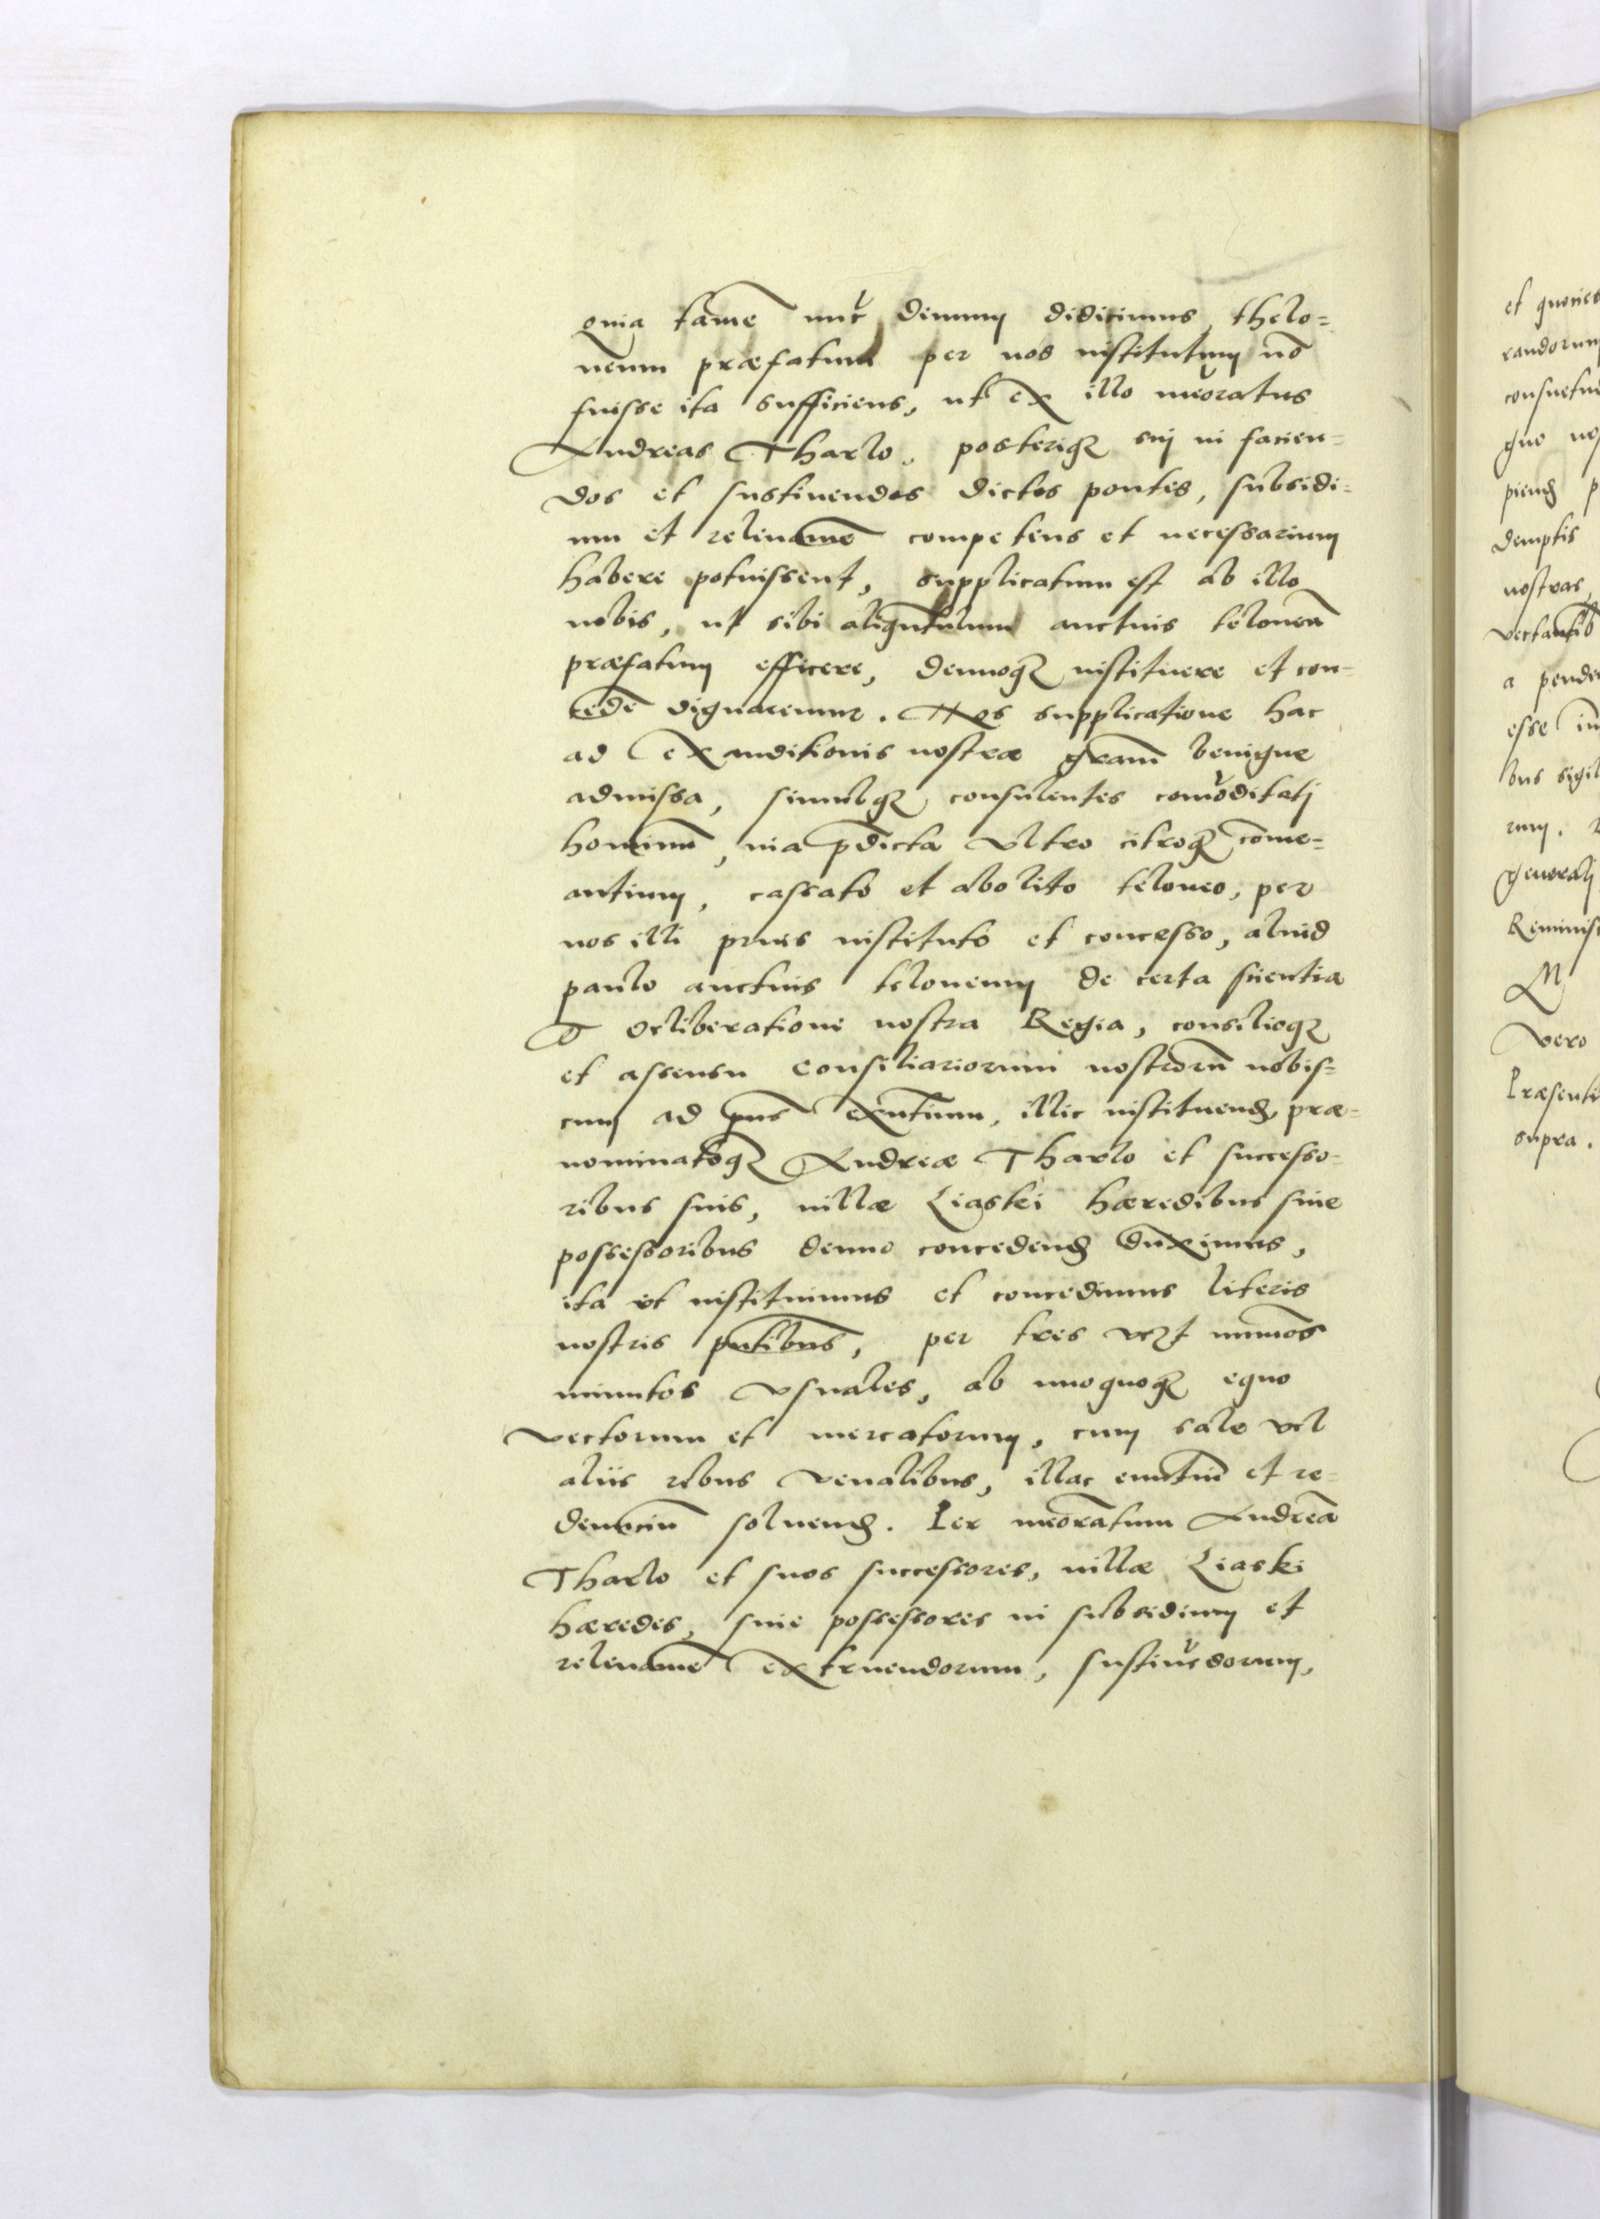 quia tamē nūc demum didicimus thelo=
neum præfatum per nos institutum nō
fuisse ita sufficiens, ut ex illo mēoratus
Andreas Tharlo, posteriqꝫ sui in facien=
dos et sustinendos dictos pontes, subsidi=
um et relevamē competens et necessarium
habere potuissent, supplicatum est ab illo
nobis, ut sibi aliquātulum auctius teloneū
præfatum efficere, denuoqꝫ instituere et con=
cedē dignaremur. Nos supplicatione hac
ad exauditionis nostræ gratiam benigne
admissa, simulqꝫ consulentes comōditati
hominū, via p̄dicta ultro citroqꝫ cōme=
antium, cassato et abolito teloneo, per
nos illi prius instituto et concesso, aliud
paulo auctius teloneum de certa scientia
et deliberatione nostra Regia, consilioqꝫ
et assensu consiliariorum nostrorū nobis=
cum ad pn̄s exn̄tium, illic instituend, præ=
nominatoqꝫ Andreæ Tharlo et successo=
ribus suis, villæ Liaski hæredibus sive
possessoribus denuo concedend duximus,
ita ut instituimus et concedimus literis
nostris pn̄tibus, per tres vczt nummos
minutos usuales, ab unoquoqꝫ equo
vectorum et mercatorum, cum sale vel
aliis rebus venalibus, illac euntiū et re=
deuntiū solvend. Per mēoratum Andreā
Tharlo et suos successores, villæ Liaski
hæredes, sive possessores in subsidium et
relevamē extruendorum, sustinēdorum,

et quoties
randorum
consuetu
que no
piend p
demptis
nostras
vectantib
a pende
esse in
bus sigil
rum.
generali
Reminis
M
vero
Præsenti
supra.